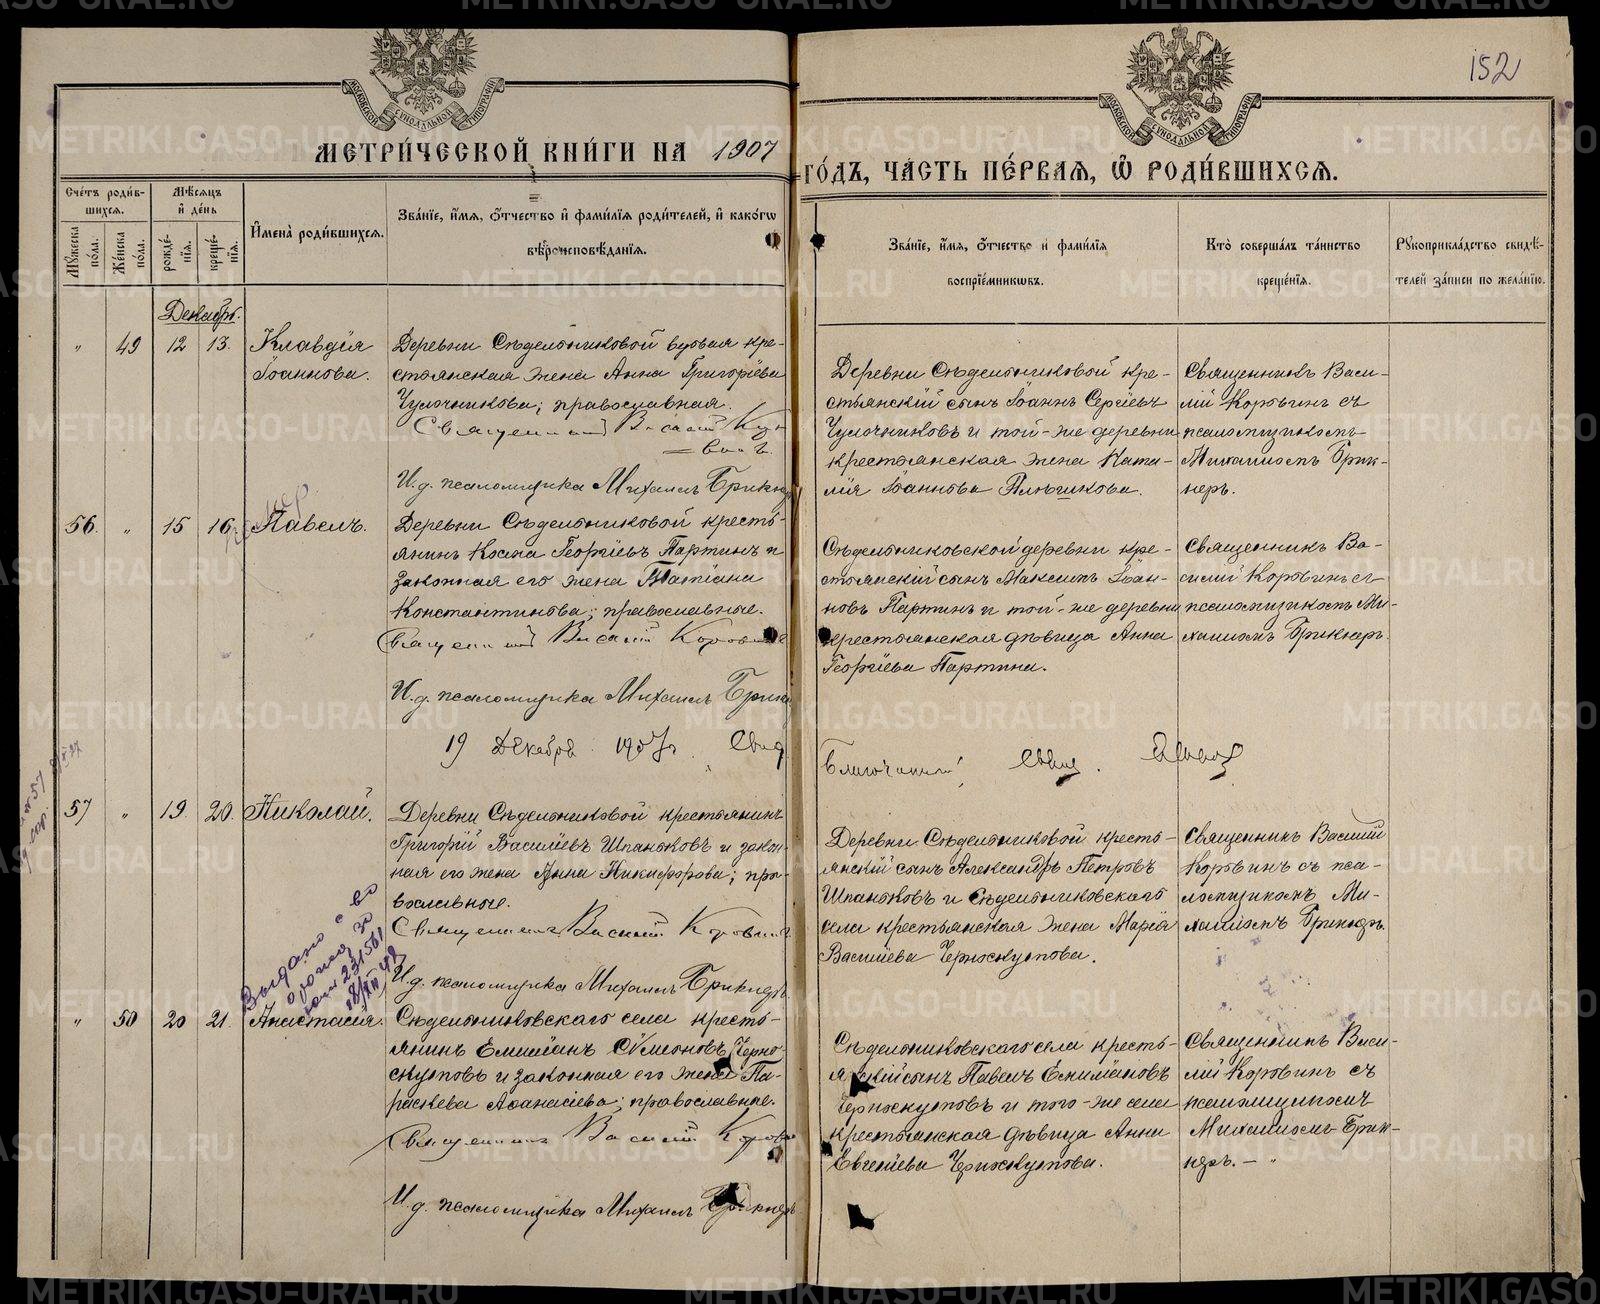 152
МОСКОВСКОЙ СѴНОДАЛЬНОЙ ТИПОГРАФІИ
МОСКОВСКОЙ СѴНОДАЛЬНОЙ ТИПОГРАФІИ
МЕТРИ́ЧЕСКОЙ КНИ́ГИ НА 1907
ГО́ДЪ, ЧА́СТЬ ПЕ́РВАЯ, Ѽ РОДИ́ВШИХСЯ.
Сче́тъ роди́в-
шихся.
Мѣ́сяцъ
и҆ де́нь
Му́жеска по́ла.
Же́нска по́ла.
рожде́-
нїя.
креще́-
нїя.
И҆мена̀ роди́вшихся.
Зва́нїе, и҆́мя, ѻ҆́тчество и҆ фами́лїя роди́телей, и҆ како́гѡ
вѣроисповѣ́данїя.
Зва́нїе, и҆́мя, ѻ҆́тчество и҆ фами́лїя
воспрїе́мникѡвъ.
Кто̀ соверша́лъ та́инство
креще́нїя.
Рꙋкоприкла́дство свидѣ́-
телей за́писи по жела́нїю.
Декабрь.
" 49 12 13. Клавдія
Іоаннова.
Деревни Сѣдельниковой вдовая кре-
стьянская жена Анна Григоріева
Чулочникова; православная.
Священникъ Василій Кор-
винъ.
И.д. псаломщика Михаилъ Брикнеръ
Деревни Сѣдельниковой кре-
стьянскій сынъ Іоаннъ Сергіевъ
Чулочниковъ и той-же деревни
крестьянская жена Ната-
лія Іоаннова Плѣшкова.
Священникъ Васи-
лій Корвинъ съ
псаломщикомъ
Михаиломъ Брик-
неръ.
56. " 15 16 Павелъ.
Деревни Сѣдельниковой кресть-
янинъ Косма Георгіевъ Партинъ и
законная его жена Татіана
Константинова; православные.
Священникъ Василій Коровинъ
И.д. псаломщика Михаилъ Брикн
Сѣдельниковской деревни кре-
стьянскій сынъ Максимъ Іоан-
новъ Партинъ и той-же деревни
крестьянская дѣвица Анна
Георгіева Партина.
Священникъ Ва-
силій Корвинъ съ
псаломщикомъ Ми-
хаиломъ Брикнеръ.
19 Декабря 1907 г.
Благочинный
57 " 19. 20. Николай.
Деревни Сѣдельниковой крестьянинъ
Григорій Василіевъ Шпаньковъ и закон-
ная его жена Анна Никифорова; пра-
вославные.
Священникъ Василій Корвинъ
И.д. псаломщика Михаилъ Брикнеръ
Деревни Сѣдельниковой кресть-
янскій сынъ Александръ Петровъ
Шпаньковъ и Сѣдельниковскаго
села крестьянская жена Марія
Василіева Черноскутова.
Священникъ Василій
Корвинъ съ пса-
ломщикомъ Ми-
хаиломъ Брикнеръ.
Выдано с-во
231561
18/XII 42
" 50 20 21. Анастасія.
Сѣдельниковскаго села кресть-
янинъ Емиліанъ Сѷмеоновъ Черно-
скутовъ и законная его жена Па-
раскева Аѳанасіева; православные.
Священникъ Василій Корвинъ
И.д. псаломщика Михаилъ Брикнеръ
Сѣдельниковскаго села кресть-
янскій сынъ Павелъ Емиліановъ
Черноскутовъ и того-же села
крестьянская дѣвица Анна
Евгеніева Черноскутова.
Священникъ Васи-
лій Корвинъ съ
псаломщикомъ
Михаиломъ Брик-
неръ. — "
METRIKI.GASO-URAL.RU